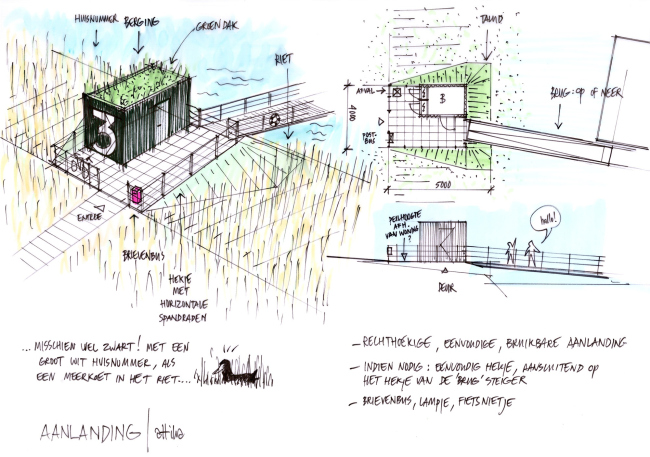 HUISNUMMER
BERGING
GROEN DAK
RIET
3
ENTREE
BRIEVENBUS
HEKJE
MET
HORIZONTALE
SPANDRADEN
TALUD
AFVAL
B
BRUG: OP OF NEER
4000
POST-
BUS
5000
PEILHOOGTE
AFH.
VAN WONING
?
hallo!
DEUR
... MISSCHIEN WEL ZWART! MET EEN
GROOT WIT HUISNUMMER, ALS
EEN MEERKOET IN HET RIET....
- RECHTHOEKIGE, EENVOUDIGE, BRUIKBARE AANLANDING
- INDIEN NODIG: EENVOUDIG HEKJE, AANSLUITEND OP
HET HEKJE VAN DE 'BRUG' STEIGER
- BRIEVENBUS, LAMPJE, FIETSNIETJE
AANLANDING | attika